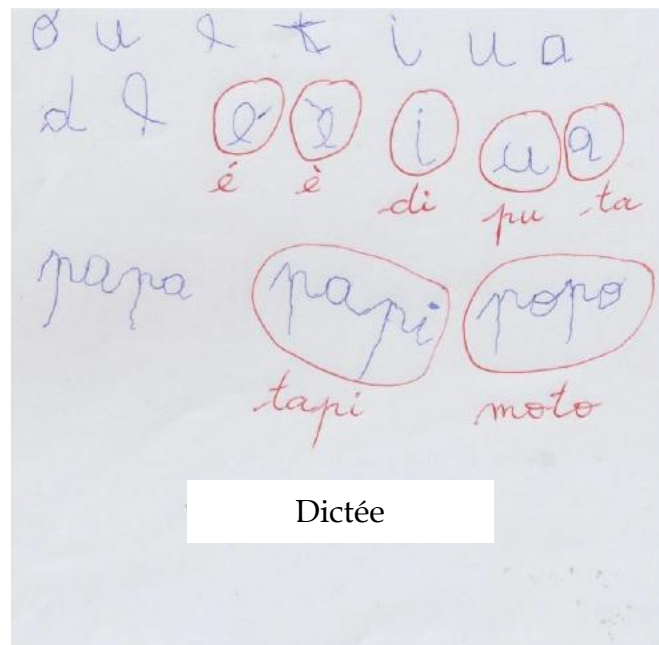 o u e t i u a
d l é è i u a
é è di pu ta
papa papi popo
tapi moto
Dictée